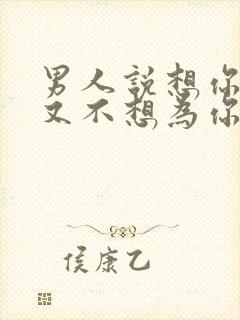 男人說想你
又不想為你
侯康乙